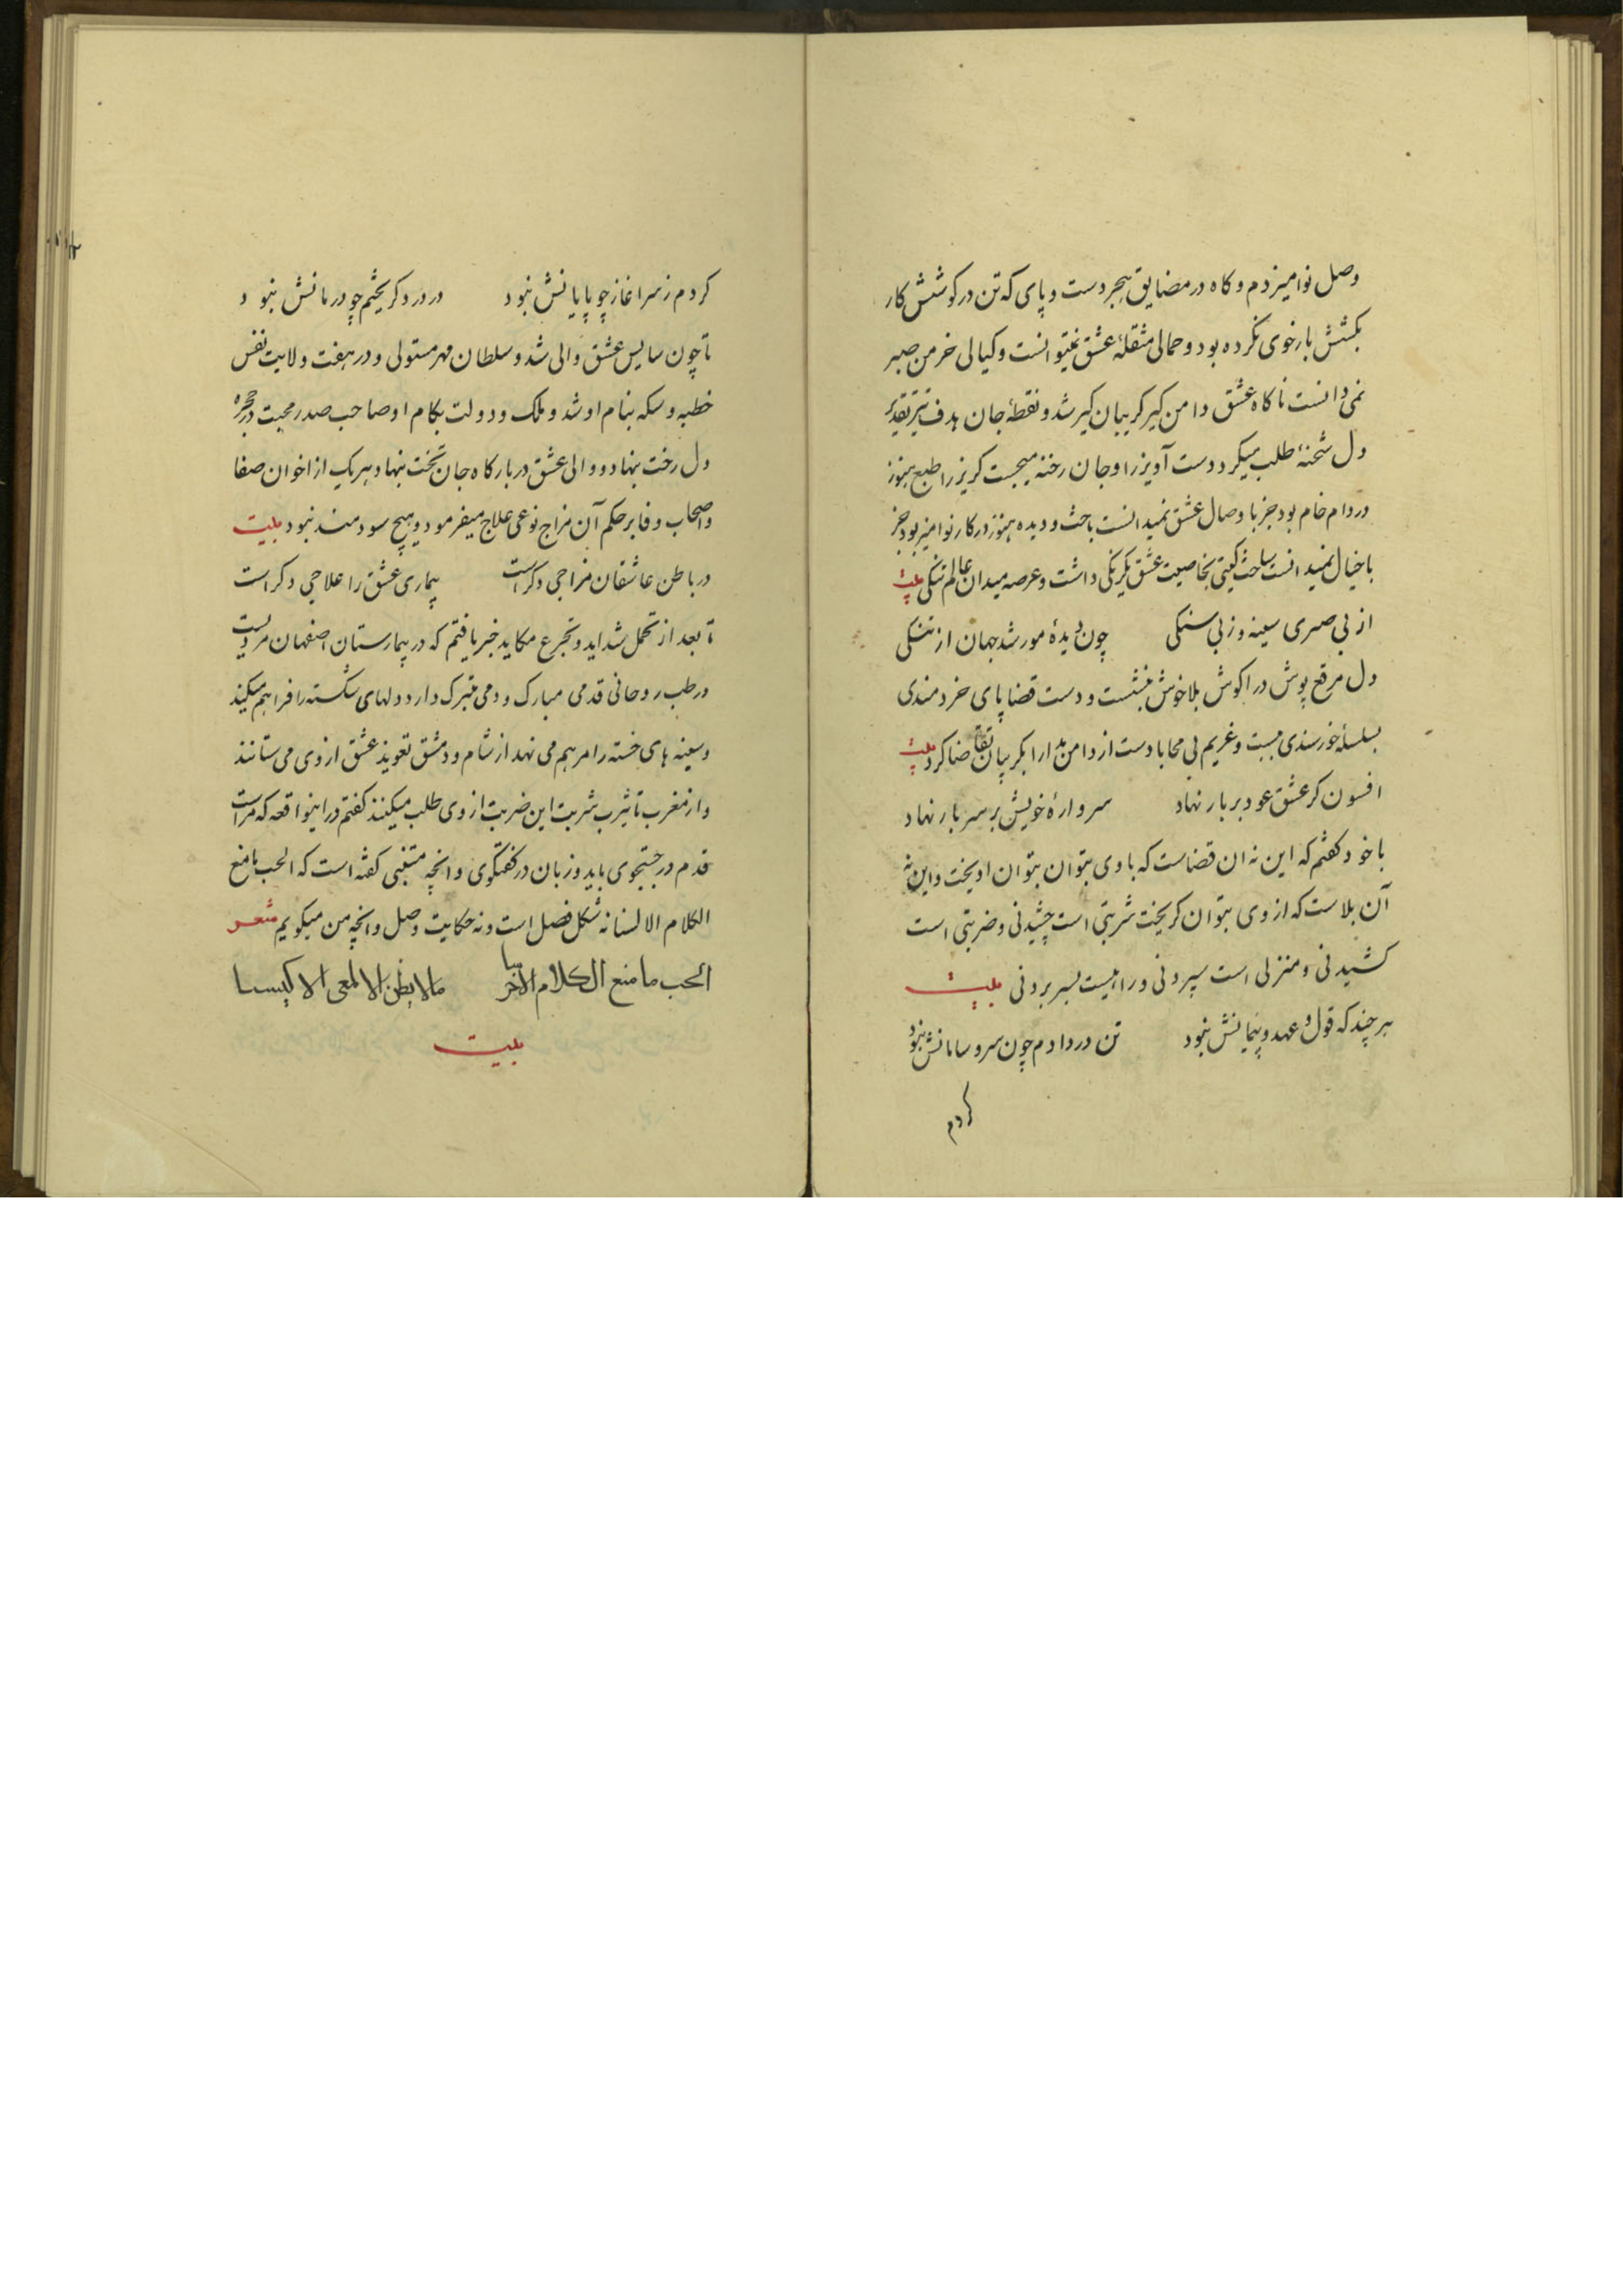 وصل نوامیزدم و کاه در مضایق هجر دست و پای که تن در کوشش کار
بکشش بار خوی نکرده بود و حمالی مثقلهٔ عشق نمیتوانست و کیالی خرمن صبر
نمی دانست ناکاه عشق دامن کیر کریبان کیر شد و نقطهٔ جان هدف تیر تقدیر
دل شحنهٔ طلب میکرد دست آویز را و جان رخنه میجست کریز را طبع هنوز
در دام خام بود جز با وصال عشق نمیدانست باخت و دیده هنوز در کار نوامیز بود جز
با خیال نمیدانست ساخت کیتی بخاصیت عشق یکرنکی داشت و عرصه میدان عالم تنکی بیت
از بی صبری سینه و ز بی سنکی چون دیدهٔ مور شد جهان از تنکی
دل مرقع پوش در اکوش بلا خوش بنشست و دست قضا پای خردمندی
بسلسلهٔ خورسندی ببست و غریم بی محابا دست از دامن مدارا بکریبان تقاضا کرد بیت
افسون کر عشق عود بر بار نهاد سر وارهٔ خویش بر سر بار نهاد
با خود کفتم که این نه ان قضاست که با وی بتوان بتوان اویخت و این نه
آن بلاست که از وی بتوان کریخت شربتی است چشیدنی و ضربتی است
کشیدنی و منزلی است سپردنی و راهیست بسر بردنی بیت
هر چند که قول و عهد و پیمانش نبود تن در دادم چون سر و سامانش نبود
کردم
کردم ز سر اغاز چو پایانش نبود در درد کریختم چو درمانش نبود
تا چون سایس عشق والی شد و سلطان مهر مستولی و در هفت ولایت نفس
خطبه و سکه بنام او شد و ملک و دولت بکام او صاحب صدر محبت در حجره
دل رخت بنهاد و والی عشق در بارکاه جان تخت بنهاد هر یک از اخوان صفا
و اصحاب وفا بر حکم آن مزاج نوعی علاج میفرمود و هیچ سودمند نبود بیت
در باطن عاشقان مزاجی دکر است بیماری عشق را علاجی دکر است
تا بعد از تحمل شداید و تجرع مکاید خبر یافتم که در بیمارستان اصفهان مردیست
در طب روحانی قدمی مبارک و دمی متبرک دارد دلهای شکسته را فراهم میکند
و سینه های خسته را مرهم می نهد از شام و دمشق تعویذ عشق از وی می ستانند
و از مغرب تا یثرب شربت این ضربت از وی طلب میکنند کفتم در اینواقعه که مراست
قدم در جستجوی باید و زبان در کفتکوی و انچه متنبی کفته است که الحب ما منع
الکلام الالسنا نه شکل فصل است و نه حکایت وصل و انچه من میکویم شعر
الحب ما منع الکلام الاخرسا مالا یظن الالمعی الاکیسا
بیت